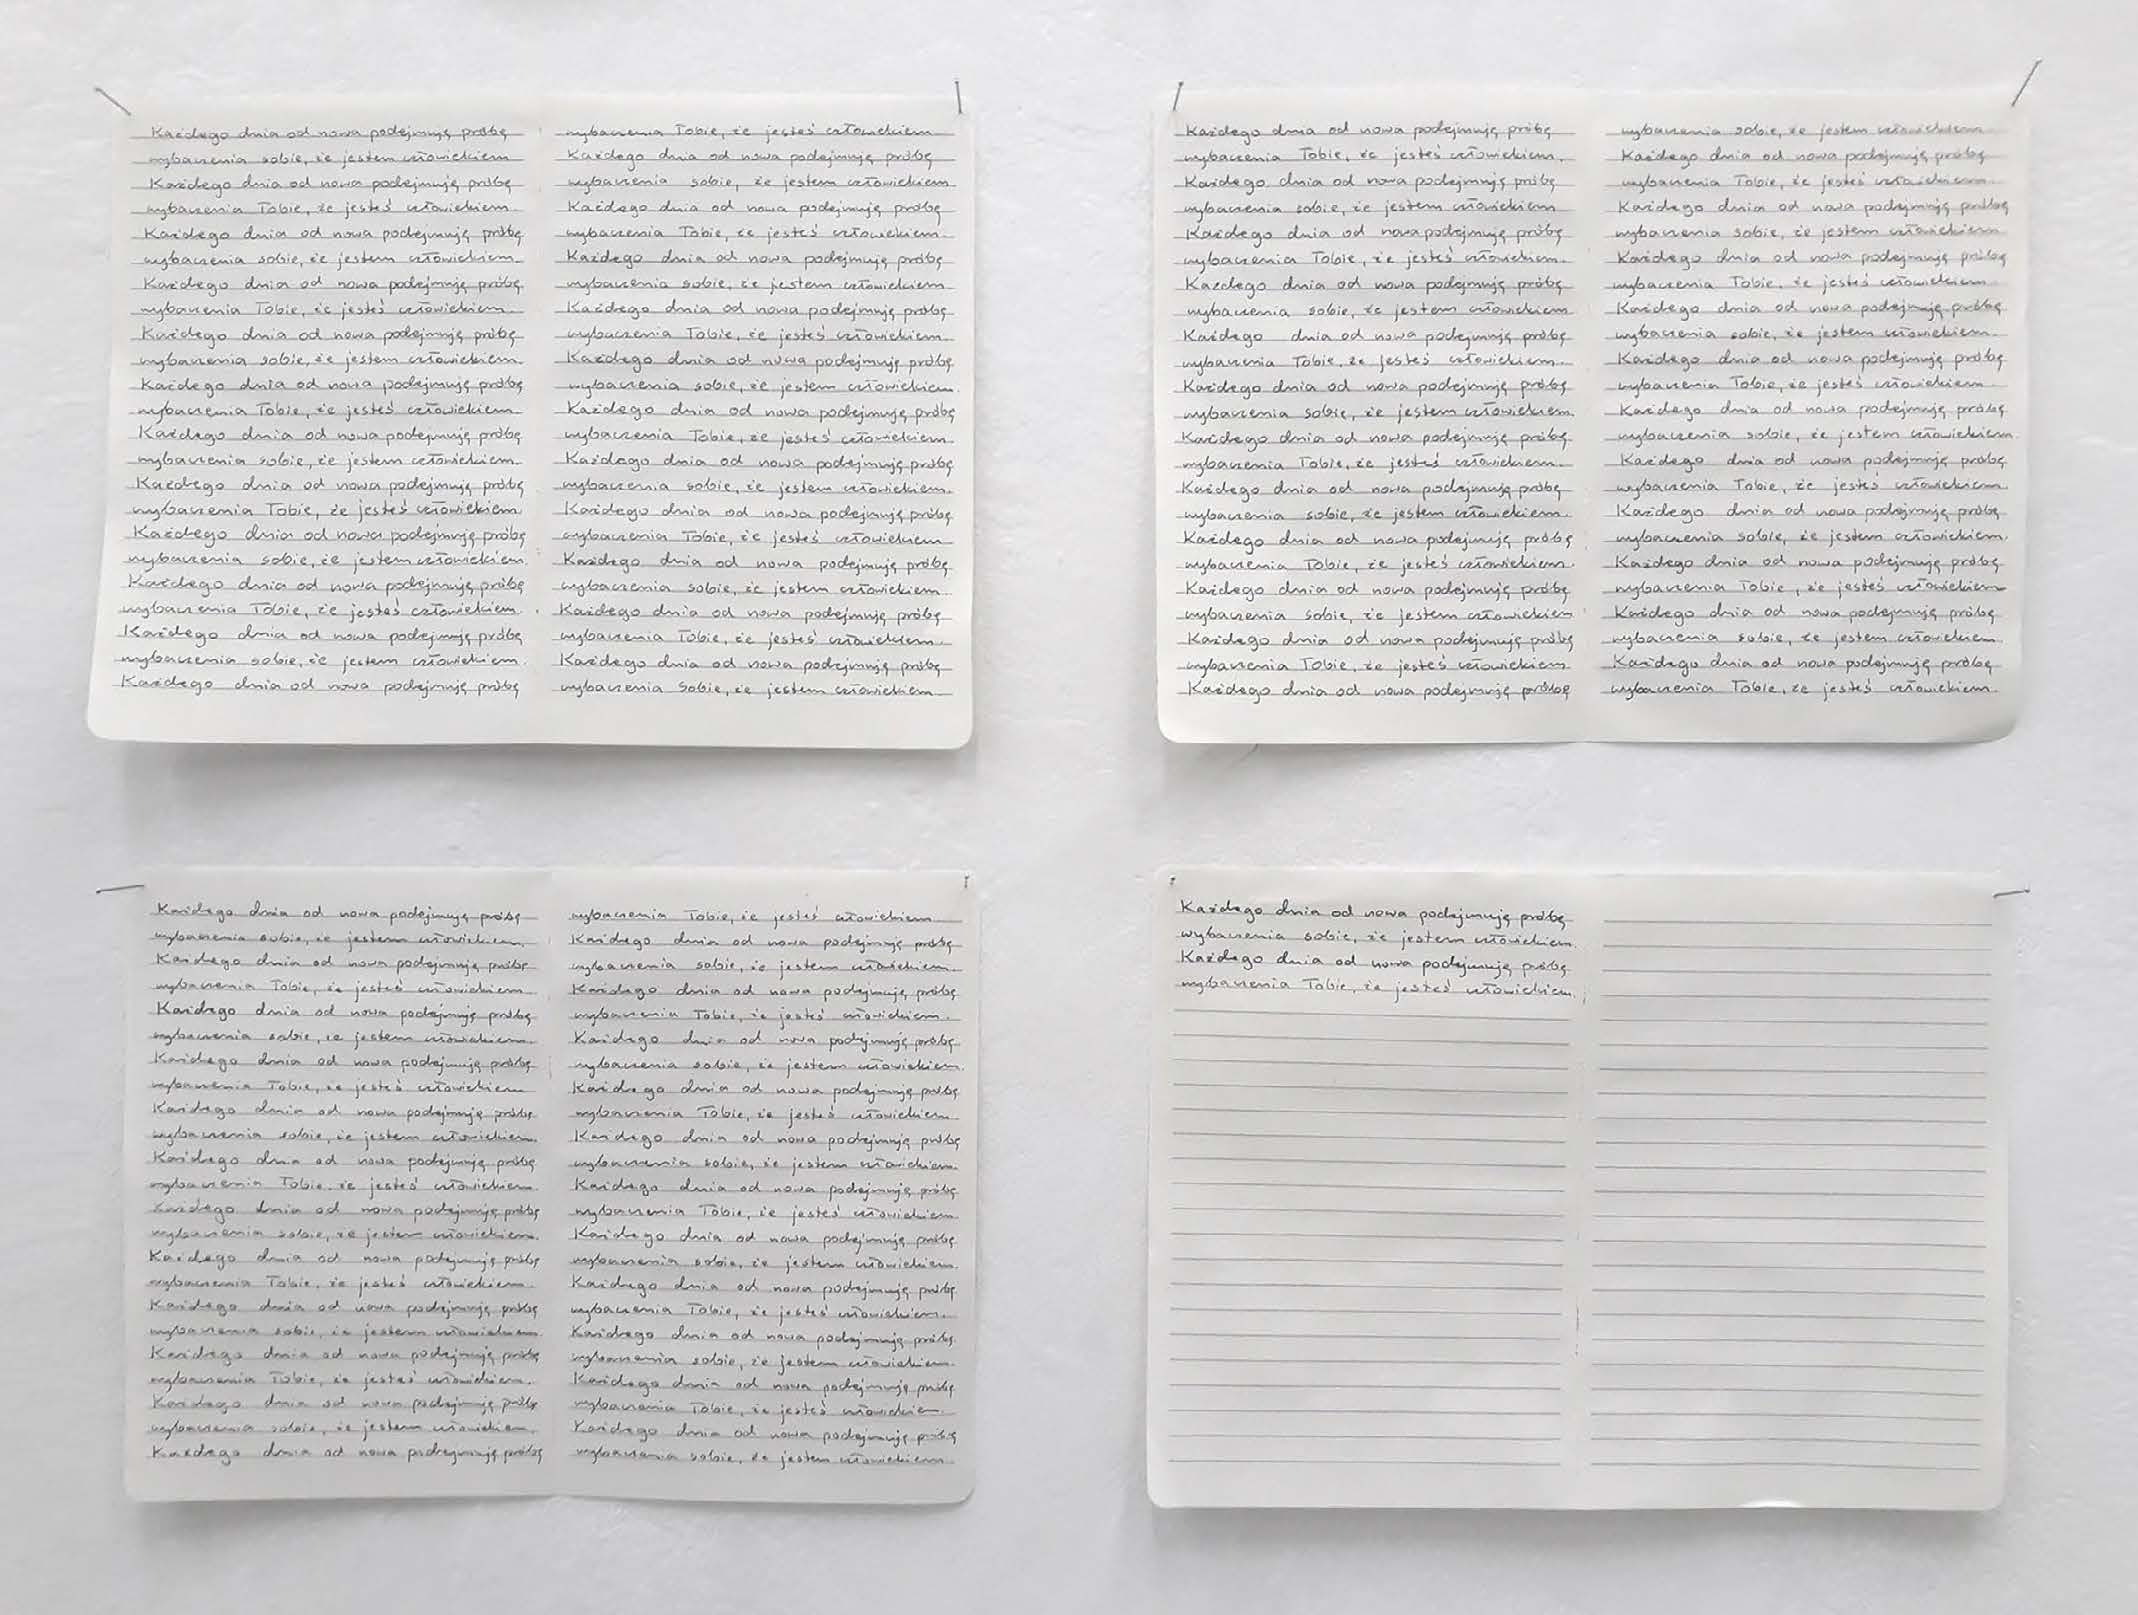 Każdego dnia od nowa podejmuję próbę
wybaczenia sobie, że jestem człowiekiem
Każdego dnia od nowa podejmuję próbę
wybaczenia Tobie, że jesteś człowiekiem.
Każdego dnia od nowa podejmuję próbę
wybaczenia sobie, że jestem człowiekiem.
Każdego dnia od nowa podejmuję próbę
wybaczenia Tobie, że jesteś człowiekiem.
Każdego dnia od nowa podejmuję próbę
wybaczenia sobie, że jestem człowiekiem.
Każdego dnia od nowa podejmuję próbę
wybaczenia Tobie, że jesteś człowiekiem.
Każdego dnia od nowa podejmuję próbę
wybaczenia sobie, że jestem człowiekiem.
Każdego dnia od nowa podejmuję próbę
wybaczenia Tobie, że jesteś człowiekiem.
Każdego dnia od nowa podejmuję próbę
wybaczenia sobie, że jestem człowiekiem.
Każdego dnia od nowa podejmuję próbę
wybaczenia Tobie, że jesteś człowiekiem.
Każdego dnia od nowa podejmuję próbę
wybaczenia sobie, że jestem człowiekiem.
Każdego dnia od nowa podejmuję próbę
wybaczenia Tobie, że jesteś człowiekiem
Każdego dnia od nowa podejmuję próbę
wybaczenia sobie, że jestem człowiekiem.
Każdego dnia od nowa podejmuję próbę
wybaczenia Tobie, że jesteś człowiekiem.
Każdego dnia od nowa podejmuję próbę
wybaczenia sobie, że jestem człowiekiem.
Każdego dnia od nowa podejmuję próbę
wybaczenia Tobie, że jesteś człowiekiem.
Każdego dnia od nowa podejmuję próbę
wybaczenia sobie, że jestem człowiekiem.
Każdego dnia od nowa podejmuję próbę
wybaczenia Tobie, że jesteś człowiekiem.
Każdego dnia od nowa podejmuję próbę
wybaczenia sobie, że jestem człowiekiem.
Każdego dnia od nowa podejmuję próbę
wybaczenia Tobie, że jesteś człowiekiem.
Każdego dnia od nowa podejmuję próbę
wybaczenia sobie, że jestem człowiekiem.
Każdego dnia od nowa podejmuję próbę
wybaczenia Tobie, że jesteś człowiekiem.
Każdego dnia od nowa podejmuję próbę
wybaczenia sobie, że jestem człowiekiem.
Każdego dnia od nowa podejmuję próbę
wybaczenia Tobie, że jesteś człowiekiem.
Każdego dnia od nowa podejmuję próbę
wybaczenia sobie, że jestem człowiekiem.
Każdego dnia od nowa podejmuję próbę
wybaczenia Tobie, że jesteś człowiekiem.
Każdego dnia od nowa podejmuję próbę
wybaczenia sobie, że jestem człowiekiem.
Każdego dnia od nowa podejmuję próbę
wybaczenia Tobie, że jesteś człowiekiem.
Każdego dnia od nowa podejmuję próbę
wybaczenia sobie, że jestem człowiekiem.
Każdego dnia od nowa podejmuję próbę
wybaczenia Tobie, że jesteś człowiekiem.
Każdego dnia od nowa podejmuję próbę
wybaczenia sobie, że jestem człowiekiem.
Każdego dnia od nowa podejmuję próbę
wybaczenia Tobie, że jesteś człowiekiem.
Każdego dnia od nowa podejmuję próbę
wybaczenia sobie, że jestem człowiekiem.
Każdego dnia od nowa podejmuję próbę
wybaczenia Tobie, że jesteś człowiekiem.
Każdego dnia od nowa podejmuję próbę
wybaczenia sobie, że jestem człowiekiem.
Każdego dnia od nowa podejmuję próbę
wybaczenia Tobie, że jesteś człowiekiem.
Każdego dnia od nowa podejmuję próbę
wybaczenia sobie, że jestem człowiekiem.
Każdego dnia od nowa podejmuję próbę
wybaczenia Tobie, że jesteś człowiekiem.
Każdego dnia od nowa podejmuję próbę
wybaczenia sobie, że jestem człowiekiem.
Każdego dnia od nowa podejmuję próbę
wybaczenia Tobie, że jesteś człowiekiem.
Każdego dnia od nowa podejmuję próbę
wybaczenia sobie, że jestem człowiekiem.
Każdego dnia od nowa podejmuję próbę
wybaczenia Tobie, że jesteś człowiekiem.
Każdego dnia od nowa podejmuję próbę
wybaczenia sobie, że jestem człowiekiem.
Każdego dnia od nowa podejmuję próbę
wybaczenia Tobie, że jesteś człowiekiem.
Każdego dnia od nowa podejmuję próbę
wybaczenia sobie, że jestem człowiekiem.
Każdego dnia od nowa podejmuję próbę
wybaczenia Tobie, że jesteś człowiekiem.
Każdego dnia od nowa podejmuję próbę
wybaczenia sobie, że jestem człowiekiem.
Każdego dnia od nowa podejmuję próbę
wybaczenia Tobie, że jesteś człowiekiem.
Każdego dnia od nowa podejmuję próbę
wybaczenia sobie, że jestem człowiekiem.
Każdego dnia od nowa podejmuję próbę
wybaczenia Tobie, że jesteś człowiekiem.
Każdego dnia od nowa podejmuję próbę
wybaczenia sobie, że jestem człowiekiem.
Każdego dnia od nowa podejmuję próbę
wybaczenia Tobie, że jesteś człowiekiem.
Każdego dnia od nowa podejmuję próbę
wybaczenia sobie, że jestem człowiekiem.
Każdego dnia od nowa podejmuję próbę
wybaczenia Tobie, że jesteś człowiekiem.
Każdego dnia od nowa podejmuję próbę
wybaczenia sobie, że jestem człowiekiem.
Każdego dnia od nowa podejmuję próbę
wybaczenia Tobie, że jesteś człowiekiem.
Każdego dnia od nowa podejmuję próbę
wybaczenia sobie, że jestem człowiekiem.
Każdego dnia od nowa podejmuję próbę
wybaczenia Tobie, że jesteś człowiekiem.
Każdego dnia od nowa podejmuję próbę
wybaczenia sobie, że jestem człowiekiem.
Każdego dnia od nowa podejmuję próbę
wybaczenia Tobie, że jesteś człowiekiem
Każdego dnia od nowa podejmuję próbę
wybaczenia sobie, że jestem człowiekiem.
Każdego dnia od nowa podejmuję próbę
wybaczenia Tobie, że jesteś człowiekiem.
Każdego dnia od nowa podejmuję próbę
wybaczenia sobie, że jestem człowiekiem.
Każdego dnia od nowa podejmuję próbę
wybaczenia Tobie, że jesteś człowiekiem.
Każdego dnia od nowa podejmuję próbę
wybaczenia sobie, że jestem człowiekiem.
Każdego dnia od nowa podejmuję próbę
wybaczenia Tobie, że jesteś człowiekiem.
Każdego dnia od nowa podejmuję próbę
wybaczenia sobie, że jestem człowiekiem.
Każdego dnia od nowa podejmuję próbę
wybaczenia Tobie, że jesteś człowiekiem.
Każdego dnia od nowa podejmuję próbę
wybaczenia sobie, że jestem człowiekiem.
Każdego dnia od nowa podejmuję próbę
wybaczenia Tobie, że jesteś człowiekiem.
Każdego dnia od nowa podejmuję próbę
wybaczenia sobie, że jestem człowiekiem.
Każdego dnia od nowa podejmuję próbę
wybaczenia sobie, że jestem człowiekiem.
Każdego dnia od nowa podejmuję próbę
wybaczenia Tobie, że jesteś człowiekiem.